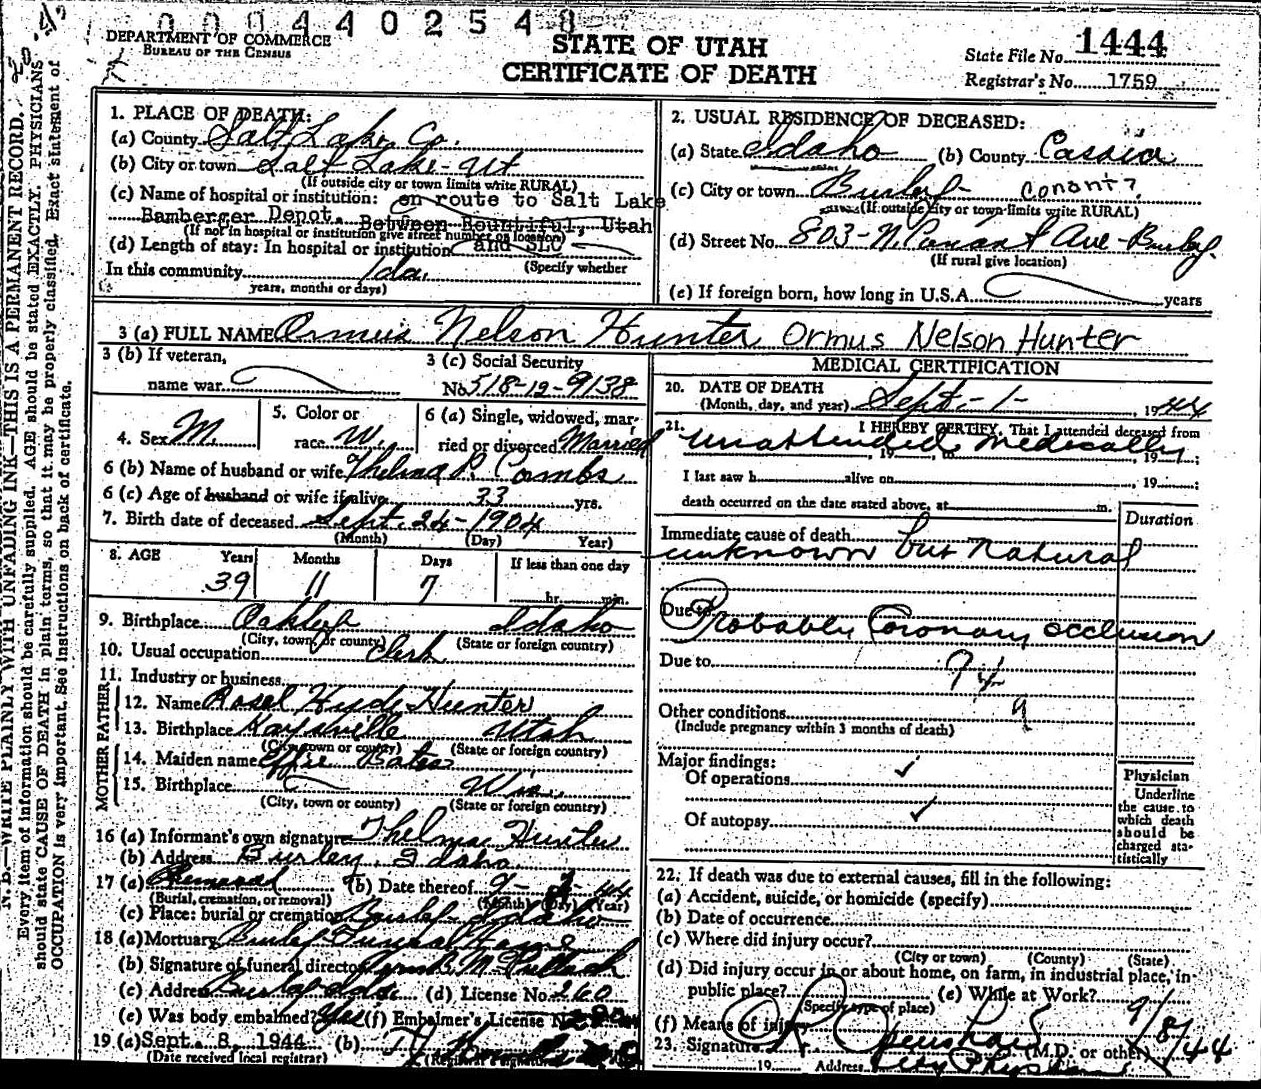 000440254 8
DEPARTMENT OF COMMERCE
BUREAU OF THE CENSUS
STATE OF UTAH
CERTIFICATE OF DEATH
State File No. 1444
Registrar's No. 1759
N. B.—WRITE PLAINLY WITH UNFADING INK—THIS IS A PERMANENT RECORD.
Every item of information should be carefully supplied. AGE should be stated EXACTLY. PHYSICIANS
should state CAUSE OF DEATH in plain terms, so that it may be properly classified. Exact statement of
OCCUPATION is very important. See instructions on back of certificate.
1. PLACE OF DEATH:
(a) County Salt Lake Co.
(b) City or town Salt Lake - Ut
(If outside city or town limits write RURAL)
(c) Name of hospital or institution: en route to Salt Lake
Bamberger Depot. Between Bountiful, Utah
(If not in hospital or institution give street number or location)
and SLC
(d) Length of stay: In hospital or institution
(Specify whether
In this community 1 da.
years, months or days)
2. USUAL RESIDENCE OF DECEASED:
(a) State Idaho (b) County Cassia
(c) City or town Burley Conant?
(If outside city or town limits write RURAL)
(d) Street No. 803 - N. Conant Ave - Burley.
(If rural give location)
(e) If foreign born, how long in U.S.A. years
3 (a) FULL NAME Ormus Nelson Hunter Ormus Nelson Hunter
3 (b) If veteran,
name war
3 (c) Social Security
No. 518-12-9138
4. Sex M.
5. Color or
race W.
6 (a) Single, widowed, mar-
ried or divorced Married
6 (b) Name of husband or wife Thelma P. Combs
6 (c) Age of husband or wife if alive 33 yrs.
7. Birth date of deceased Sept. 24 - 1904
(Month) (Day) Year)
8. AGE Years Months Days If less than one day
39 11 7 hr. min.
9. Birthplace Oakley Idaho
(City, town, or county) (State or foreign country)
10. Usual occupation Clerk
11. Industry or business
FATHER
12. Name Rosel Hyde Hunter
13. Birthplace Kaysville Utah
(City, town or county) (State or foreign country)
MOTHER
14. Maiden name Effie Bates
15. Birthplace
(City, town or county) (State or foreign country)
16 (a) Informant's own signature Thelma Hunter
(b) Address Burley, Idaho.
17 (a) Removal (b) Date thereof 9 - 2 - 44
(Burial, cremation, or removal) (Month) (Day) (Year)
(c) Place: burial or cremation Burley Idaho
18 (a) Mortuary Burley Funeral Home
(b) Signature of funeral director
(c) Address Burley Ida. (d) License No. 260
(e) Was body embalmed? Yes (f) Embalmer's License No.
19 (a) Sept. 8, 1944 (b)
(Date received local registrar) (Registrar's signature)
MEDICAL CERTIFICATION
20. DATE OF DEATH
(Month, day, and year) Sept - 1 - , 1944
21. I HEREBY CERTIFY, That I attended deceased from
unattended medically
, 19 , to , 19 ;
I last saw h alive on , 19 ;
death occurred on the date stated above, at m.
Duration
Immediate cause of death
unknown but natural
Due to
Probably Coronary occlusion
Due to 94
Other conditions 9
(Include pregnancy within 3 months of death)
Major findings:
Of operations ✓
Of autopsy ✓
Physician
Underline
the cause to
which death
should be
charged sta-
tistically
22. If death was due to external causes, fill in the following:
(a) Accident, suicide, or homicide (specify)
(b) Date of occurrence
(c) Where did injury occur?
(City or town) (County) (State)
(d) Did injury occur in or about home, on farm, in industrial place, in
public place? (e) While at Work?
(Specify type of place)
(f) Means of injury 9/8/44
23. Signature (M.D. or other)
19 Address City Physician